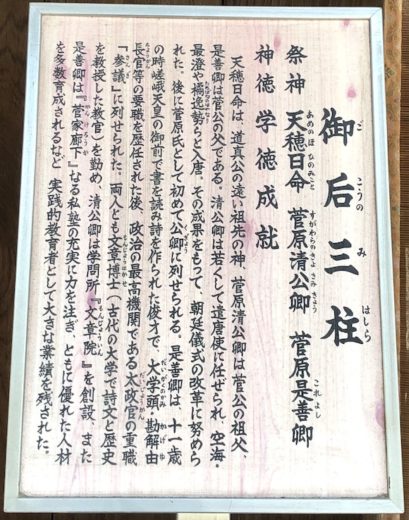 御后三柱
祭神 天穂日命 菅原清公卿 菅原是善卿
神徳 学徳成就
天穂日命は、道真公の遠い祖先の神、菅原清公卿は菅公の祖父、
是善卿は菅公の父である。清公卿は若くして遣唐使に任ぜられ、空海・
最澄や橘逸勢らと入唐。その成果をもって、朝廷儀式の改革に努めら
れた。後に菅原氏として初めて公卿に列せられる。是善卿は、十一歳
の時嵯峨天皇の御前で書を読み詩を作られた俊才で、大学頭、勘解由
長官等の要職を歴任された後、政治の最高機関である太政官の重職
「参議」に列せられた。両人とも文章博士(古代の大学で詩文と歴史
を教授した教官)を勤め、清公卿は学問所『文章院』を創設、また
是善卿は『菅家廊下』なる私塾の充実に力を注ぎ、ともに優れた人材
を多数育成されるなど、実践的教育者として大きな業績を残された。